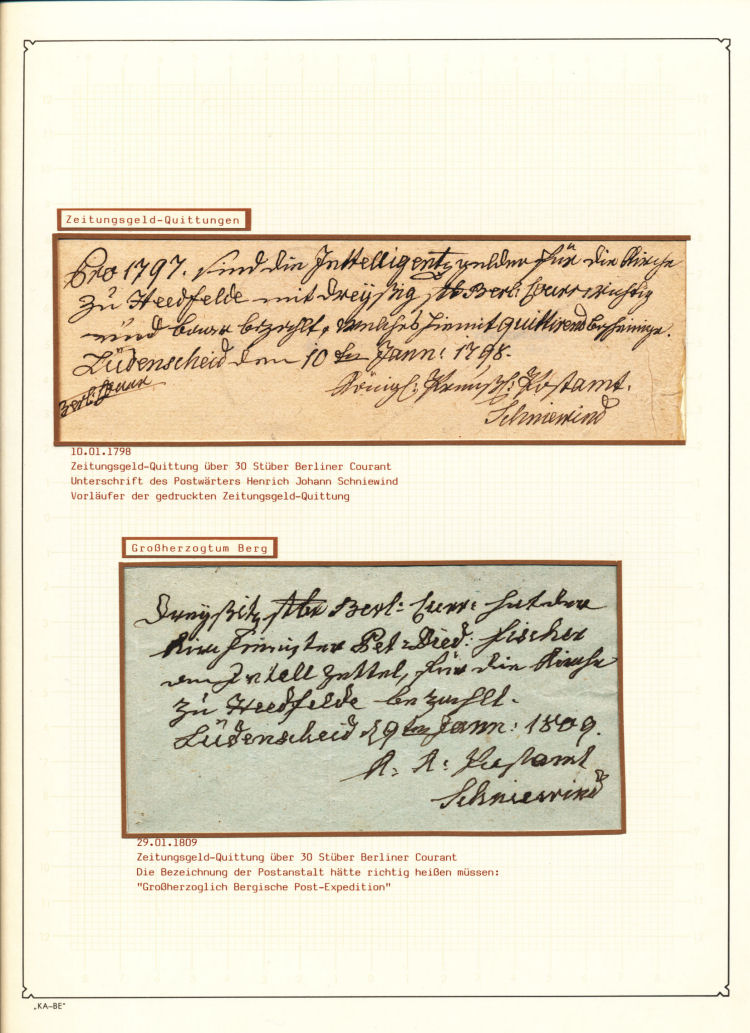 Zeitungsgeld-Quittungen
Pro 1797. sind die Intelligentz gelder für die Kirche
zu Heedfelde mit dreyßig stb Berl: Cour: richtig
und baar bezahlt, welches hiemit quittirend bescheinige.
Lüdenscheid den 10 ten Jann: 1798.
Berl: Cour
Königl: Preuß: Postamt.
Schniewind
10.01.1798
Zeitungsgeld-Quittung über 30 Stüber Berliner Courant
Unterschrift des Postwärters Henrich Johann Schniewind
Vorläufer der gedruckten Zeitungsgeld-Quittung
Großherzogtum Berg
Dreyßig stbr Berl: Curr: hat der
Kirchmeister Pet: Died: Fischer
Intell Zettel, für die Kirche
zu Heedfelde bezahlt.
Lüdenscheid 29 ten Jann: 1809.
Postamt
Schniewind
29.01.1809
Zeitungsgeld-Quittung über 30 Stüber Berliner Courant
Die Bezeichnung der Postanstalt hätte richtig heißen müssen:
"Großherzoglich Bergische Post-Expedition"
„KA-BE"